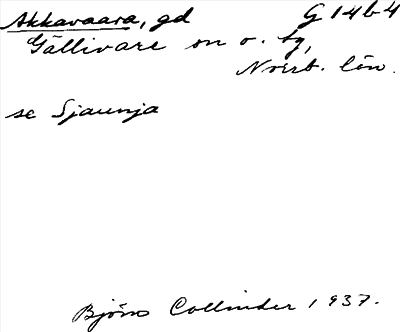 Akkavaara, gd G 14 b 4
Gällivare sn o. tg,
Norrb. län.
se Sjaunja
Björn Collinder 1937.